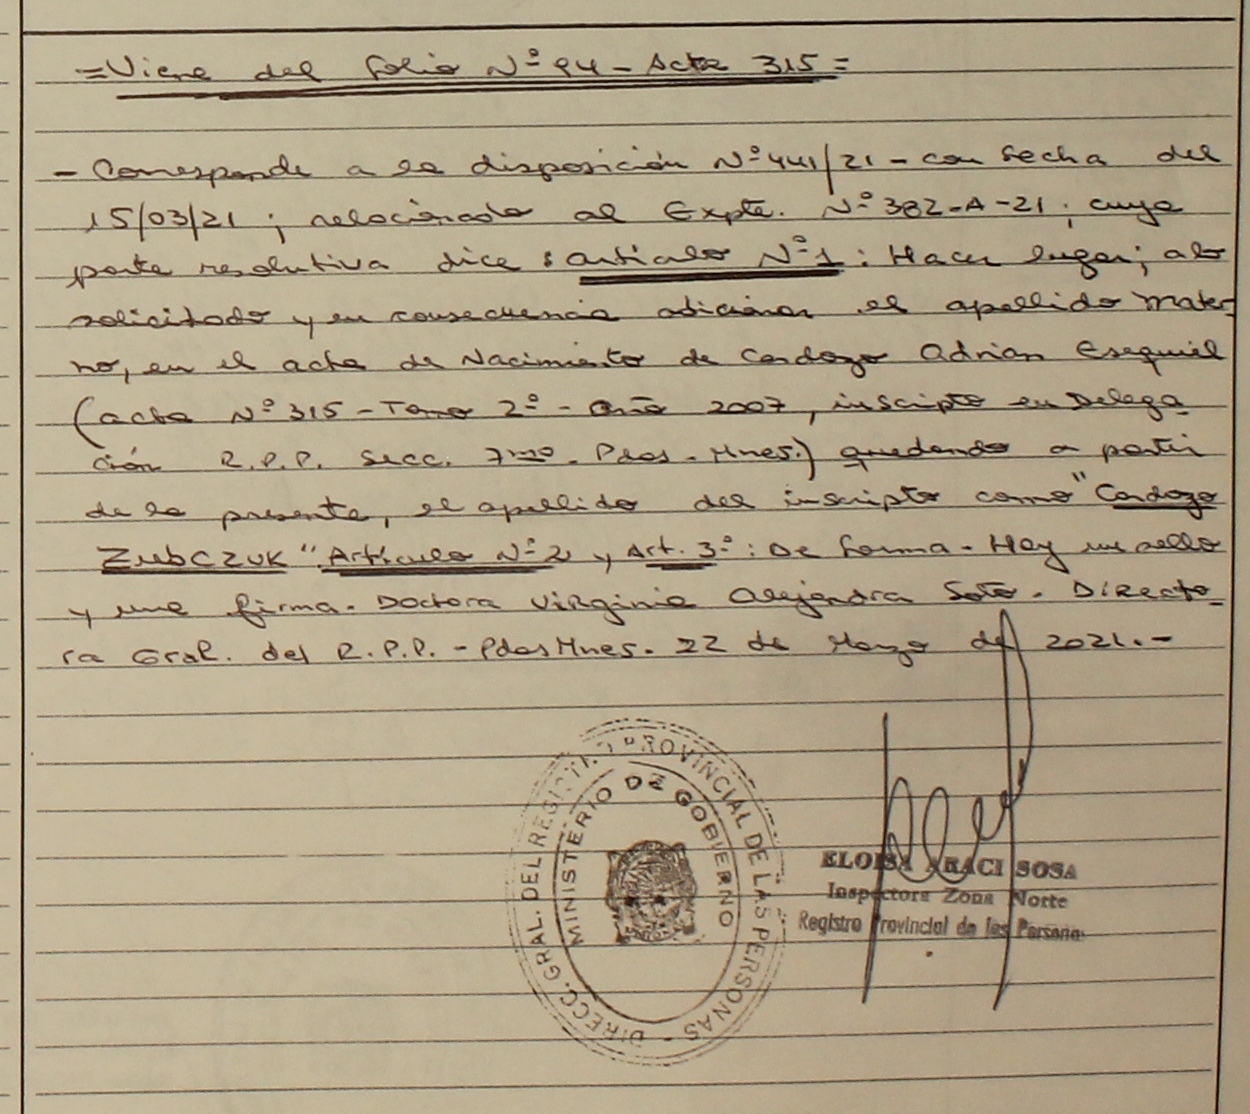 =Viene del folio Nº 94 - Acta 315=
- Corresponde a la disposición Nº 441/21 - con fecha del
15/03/21; relacionado al Expte. Nº 382-A-21; cuya
parte resolutiva dice: artículo Nº 1: Hacer lugar; a lo
solicitado y en consecuencia adicionar el apellido mater-
no, en el acta de Nacimiento de Cardozo Adrian Esequiel
(acta Nº 315 - Tomo 2º - año 2007, inscripto en Delega
ción R.P.P. Secc. 7ma. Pdas - Mnes.) quedando a partir
de la presente, el apellido del inscripto como "Cardozo
Zubczuk" Artículo Nº 2 y Art. 3º: De forma - Hay un sello
y una firma. Doctora Virginia Alejandra Soto. Directo-
ra Gral. del R.P.P. - Pdas Mnes. 22 de Marzo de 2021.-
DIRECC. GRAL. DEL REGISTRO PROVINCIAL DE LAS PERSONAS -
MINISTERIO DE GOBIERNO
ELOISA ARACI SOSA
Inspectora Zona Norte
Registro Provincial de las Personas